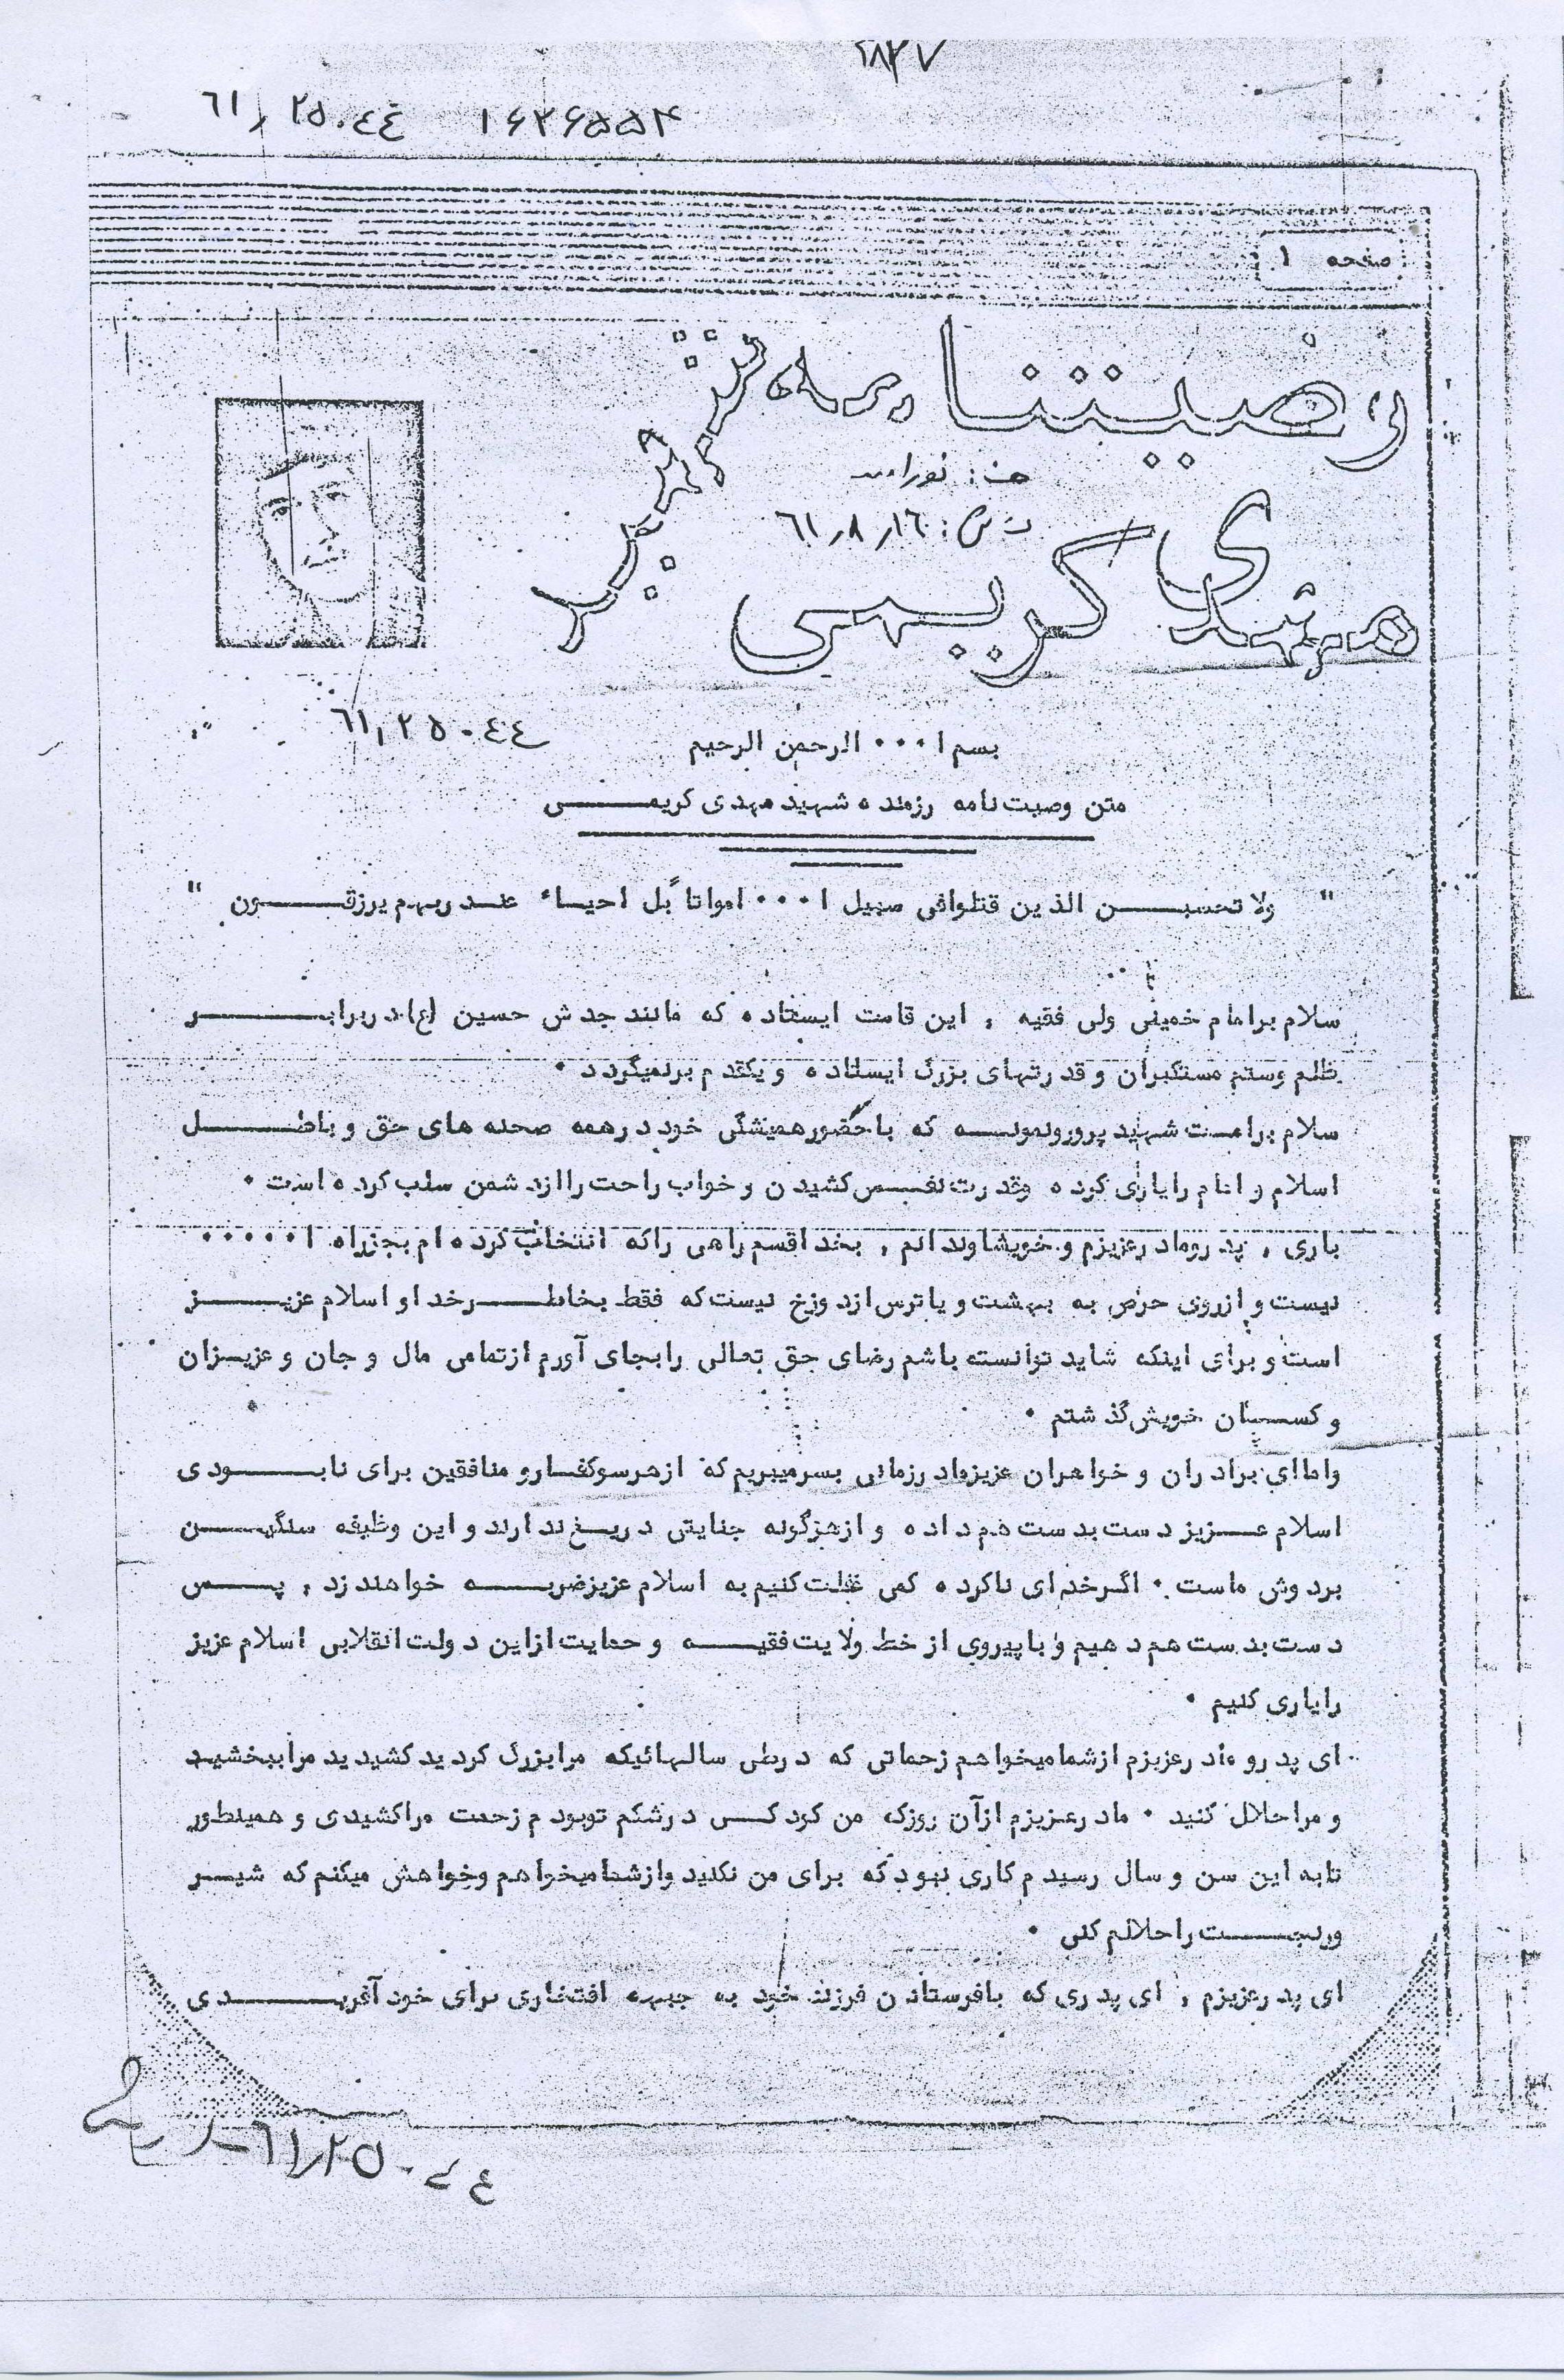 ۲۸۲۷
۱۶۲۶۵۵۴ ۶۱٫۲۵۰۴۴
صفحه ۱
وصیتنامه
ت ش: ۶۱٫۸٫۱۶
مهدی کریمی
۶۱٫۲۵۰۴۴
بسم ا... الرحمن الرحیم
متن وصیت نامه رزمنده شهید مهدی کریمی
" ولا تحسبن الذین قتلوافی سبیل ا... امواتاً بل احیاء عند ربهم یرزقون "
سلام برامام خمینی ولی فقیه , این قامت ایستاده که مانند جدش حسین (ع) دربرابر
ظلم وستم مستکبران وقدرتهای بزرگ ایستاده ویکقدم برنمیگردد .
سلام برامت شهید پرورونمونه که باحضورهمیشگی خود درهمه صحنه های حق وباطل
اسلام و امام رایاری کرده وقدرت نفس کشیدن وخواب راحت راازدشمن سلب کرده است .
باری , پدرومادرعزیزم وخویشاوندانم , بخداقسم راهی راکه انتخاب کرده ام بجزراه ا.....
نیست وازروی حرص به بهشت ویاترس ازدوزخ نیست که فقط بخاطرخداواسلام عزیز
است وبرای اینکه شاید توانسته باشم رضای حق تعالی رابجای آورم ازتمامی مال وجان وعزیزان
وکسان خویش گذشتم .
واماای برادران وخواهران عزیزمادرزمانی بسرمیبریم که ازهرسوکفارو منافقین برای نابودی
اسلام عزیز دست بدست هم داده وازهرگونه جنایتی دریغ ندارند واین وظیفه سنگین
بردوش ماست . اگرخدای ناکرده کمی غفلت کنیم به اسلام عزیزضربه خواهند زد , پس
دست بدست هم دهیم وباپیروی ازخط ولایت فقیه وحمایت ازاین دولت انقلابی اسلام عزیز
رایاری کنیم .
ای پدرومادرعزیزم ازشمامیخواهم زحماتی که درطی سالهائیکه مرابزرگ کردید کشیدید مراببخشید
ومراحلال کنید . مادرعزیزم ازآن روزکه من کودکی درشکم توبودم زحمت مراکشیدی وهمینطور
تابه این سن وسال رسیدم کاری نبودکه برای من نکنید وازشمامیخواهم وخواهش میکنم که شیر
راحلالم کنی .
ای پدرعزیزم , ای پدری که بافرستادن فرزند خود به جبهه افتخاری برای خود آفریدی
۶۱٫۲۵۰۴۴